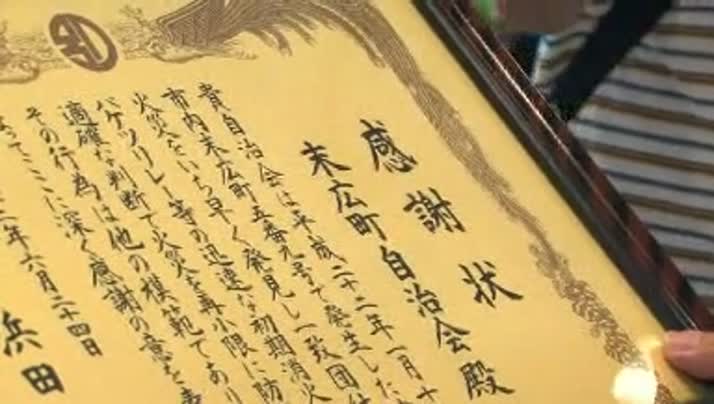 感謝状
末広町自治会殿
貴自治会は平成二十二年一月十
市内末広町五番九号で発生した
火災をいち早く発見し一致団結
バケツリレー等の迅速な初期消火
適確な判断で火災を再小限に防
その行為は他の模範であり
ってここに深く感謝の意を表
年六月二十四日
浜田